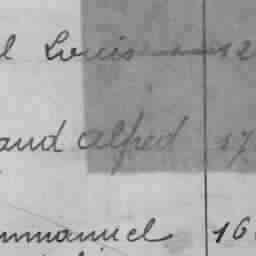 l Louis 12
and Alfred 17
mmanuel 16